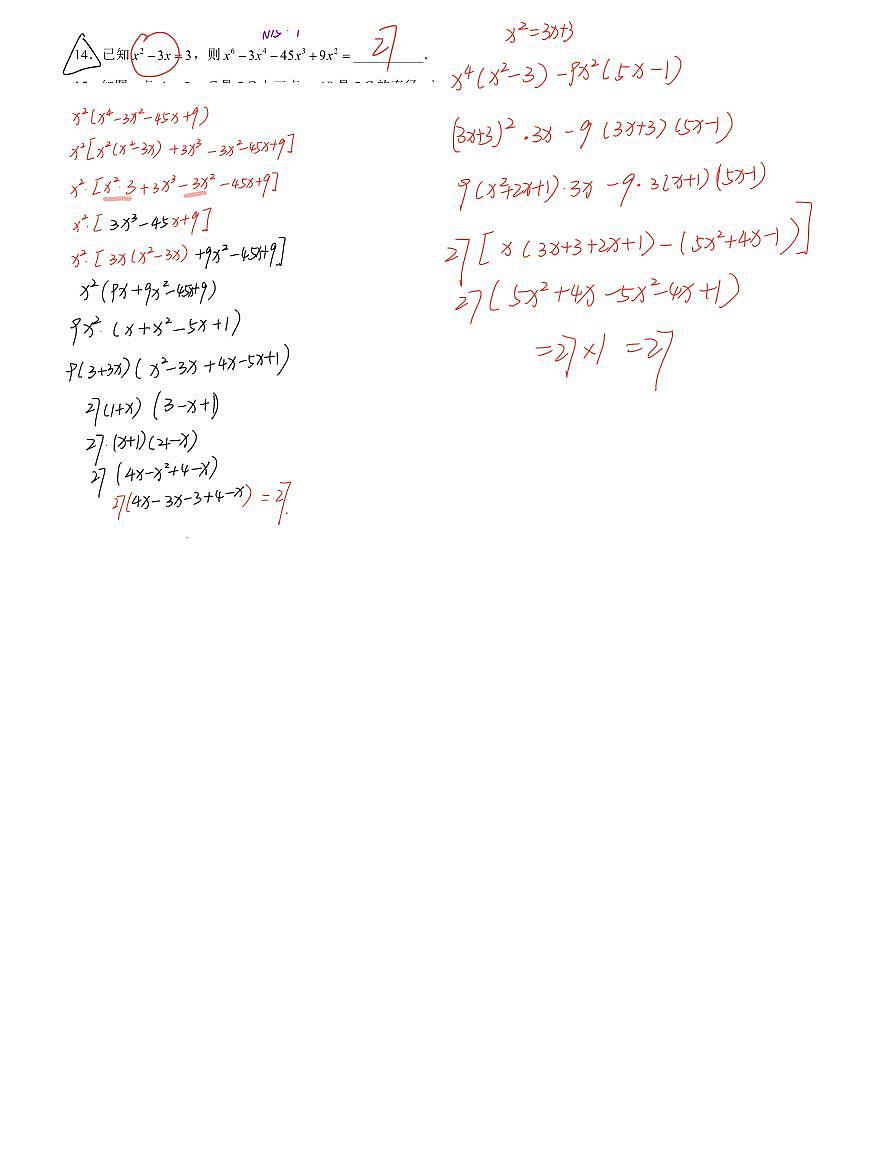 14. 已知 x² − 3x = 3，则 x⁶ − 3x⁴ − 45x³ + 9x² = 27 .
x²(x⁴-3x²-45x+9)
x²[x²(x²-3x) +3x³-3x²-45x+9]
x²·[x²·3+3x³-3x²-45x+9]
x²·[3x³-45x+9]
x²·[3x(x²-3x)+9x²-45x+9]
x²(9x+9x²-45x+9)
9x²·(x+x²-5x+1)
9(3+3x)(x²-3x+4x-5x+1)
27(1+x)(3-x+1)
27·(x+1)(4-x)
27(4x-x²+4-x)
27(4x-3x-3+4-x) = 27.
x²=3x+3
x⁴(x²-3)-9x²(5x-1)
(3x+3)²·3x-9(3x+3)(5x-1)
9(x²+2x+1)·3x-9·3(x+1)(5x-1)
27[x(3x+3+2x+1)-(5x²+4x-1)]
27(5x²+4x-5x²-4x+1)
=27×1 =27